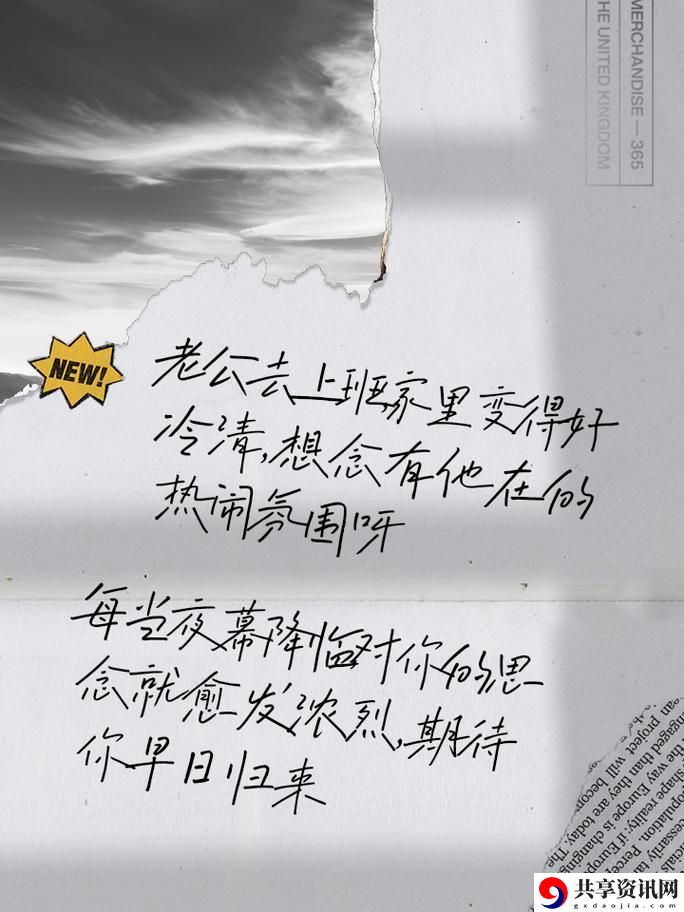 MERCHANDISE — 365
THE UNITED KINGDOM
NEW!
老公去上班家里变得好
冷清,想念有他在的
热闹氛围呀
每当夜幕降临对你的思
念就愈发浓烈,期待
你早日归来
project will becom
engaged than they are today. The
the way Europe is changing
shape reality: if Europ
population. Percep
共享资讯网
gxdaojia.com